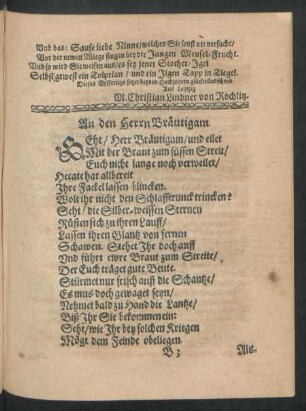 Vnd das: Sause liebe Ninne/welches Sie sonst nie versucht/
Vor der newen Wiege singen bey die Jungen Meusel-Frucht.
Vnd so wird Sie weisen aus/es sey jener Stocher-Jgel
Selbst gewest ein Tölprian / vnd ein Jlgen Tapp in Tiegel.
Dieses
Aus Leipzig
M. Christian Lindner von Rochlitz.
An den Herrn Bräutigam
SEht/ Herr Bräutigam/ vnd eilet
Mit der Braut zum süssen Streit/
Euch nicht lange noch verweilet/
Hecate hat allbereit
Jhre Fackel lassen blincken.
Wolt ihr nicht den Schlafftrunck trincken?
Seht/ die Silber-weissen Sternen
Rüsten sich zu ihren Lauff/
Lassen ihren Glantz von fernen
Schawen. Stehet Jhr doch auff
Vnd führt ewre Braut zum Streite/
Der Euch träget gute Beute.
Stürmet nur frisch auff die Schantze/
Es mus doch gewaget seyn/
Nehmet bald zu Hand die Lantze/
Biß Jhr Sie bekommen ein:
Seht/ wie Jhr bey solchen Kriegen
Mögt dem Feinde obeliegen.
B 3
Als-